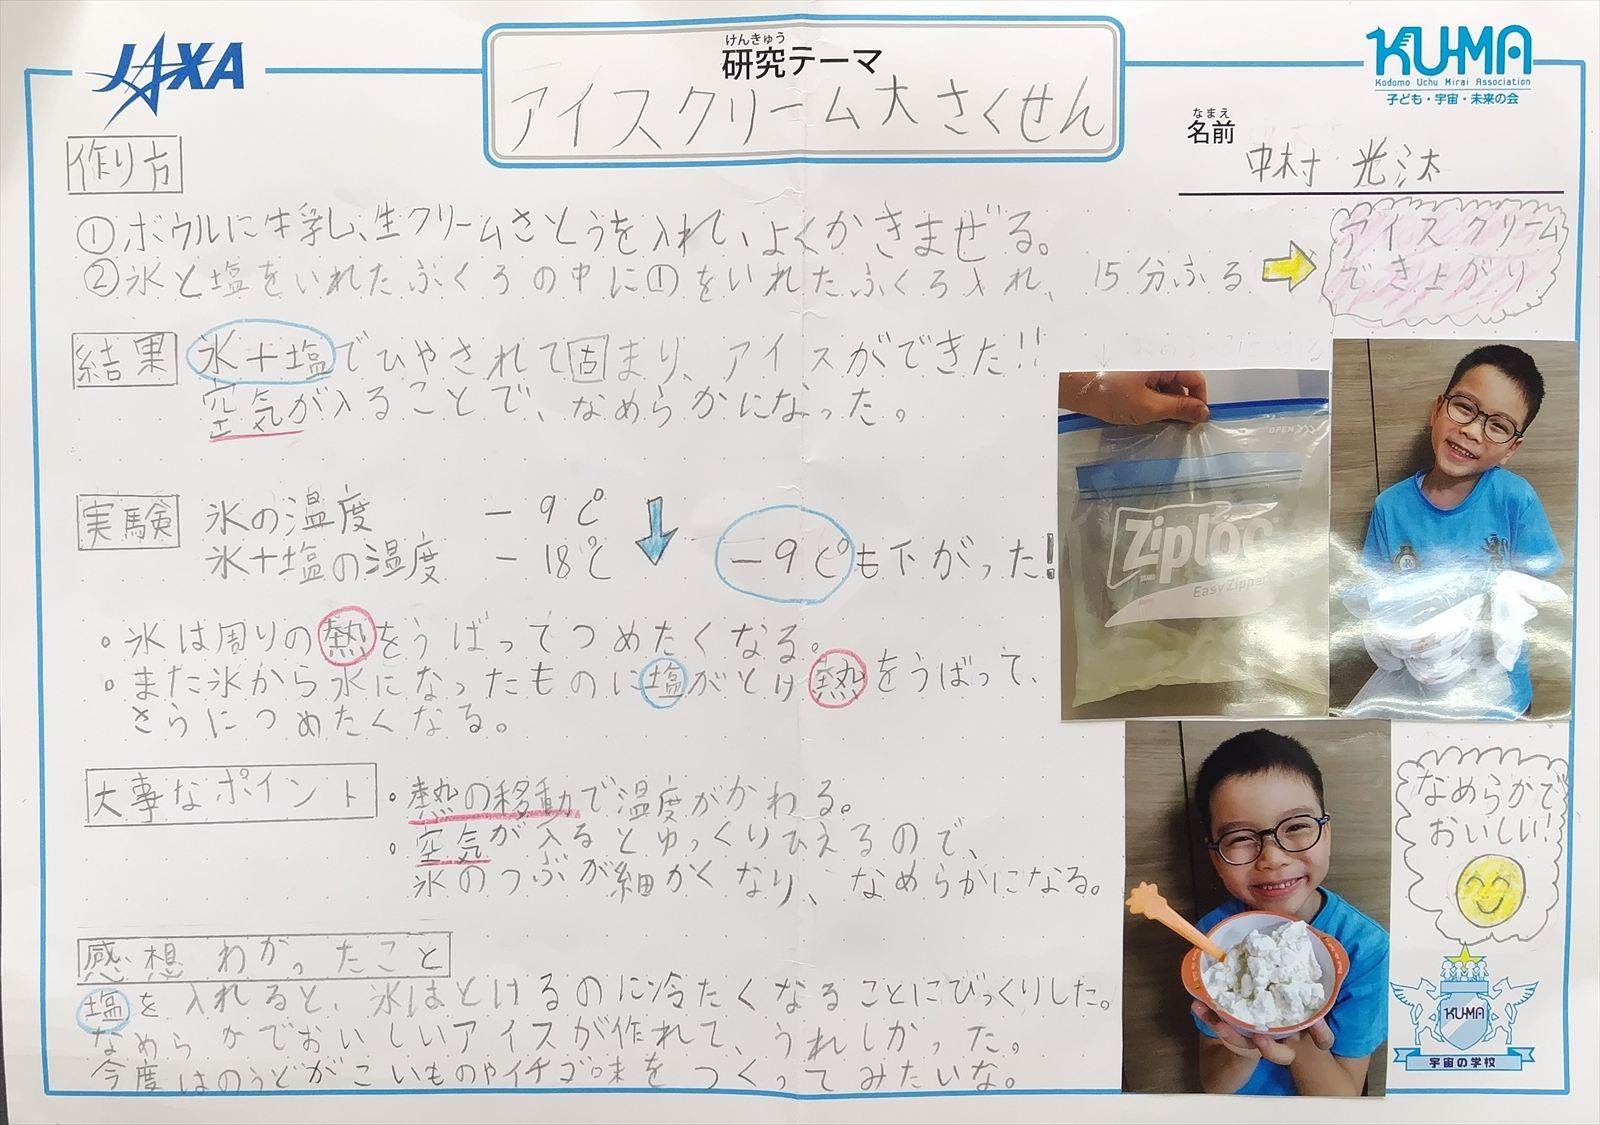 JAXA
けんきゅう
研究テーマ
アイスクリーム大さくせん
KU-MA
Kodomo Uchu Mirai Association
子ども・宇宙・未来の会
なまえ
名前
中村 光汰
作り方
①ボウルに牛乳し、生クリームさとうを入れて、よくかきまぜる。
②氷と塩をいれたふくろの中に①をいれたふくろ入れ、15分ふる
アイスクリーム
でき上がり
結果 氷+塩でひやされて固まり、アイスができた!!
空気が入ることで、なめらかになった。
実験 氷の温度 -9C°
氷+塩の温度 -18℃
-9C°も下がった!
・氷は周りの熱をうばってつめたくなる。
・また氷から水になったものに塩がとけ熱をうばって、
さらにつめたくなる。
OPEN
Ziploc
Easy Zipper
大事なポイント
・熱の移動で温度がかわる。
・空気が入るとゆっくりひえるので、
氷のつぶが細かくなり、なめらかになる。
なめらかで
おいしい!
感想 わかったこと
塩を入れると、氷はとけるのに冷たくなることにびっくりした。
なめらかでおいしいアイスが作れて、うれしかった。
今度はのうどがこいものやイチゴ味をつくってみたいな。
KU-MA
宇宙の学校